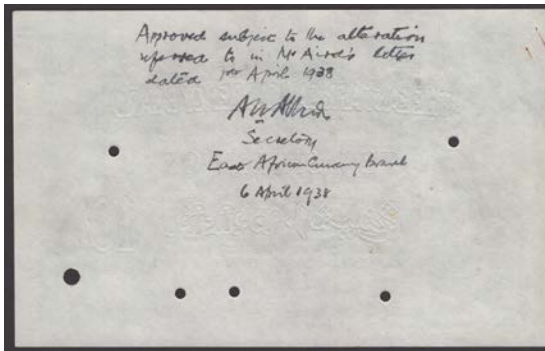 Approved subject to the alteration
referred to in Mr Aird's letter
dated 1st April 1938
Secretary
East African Currency Board
6 April 1938